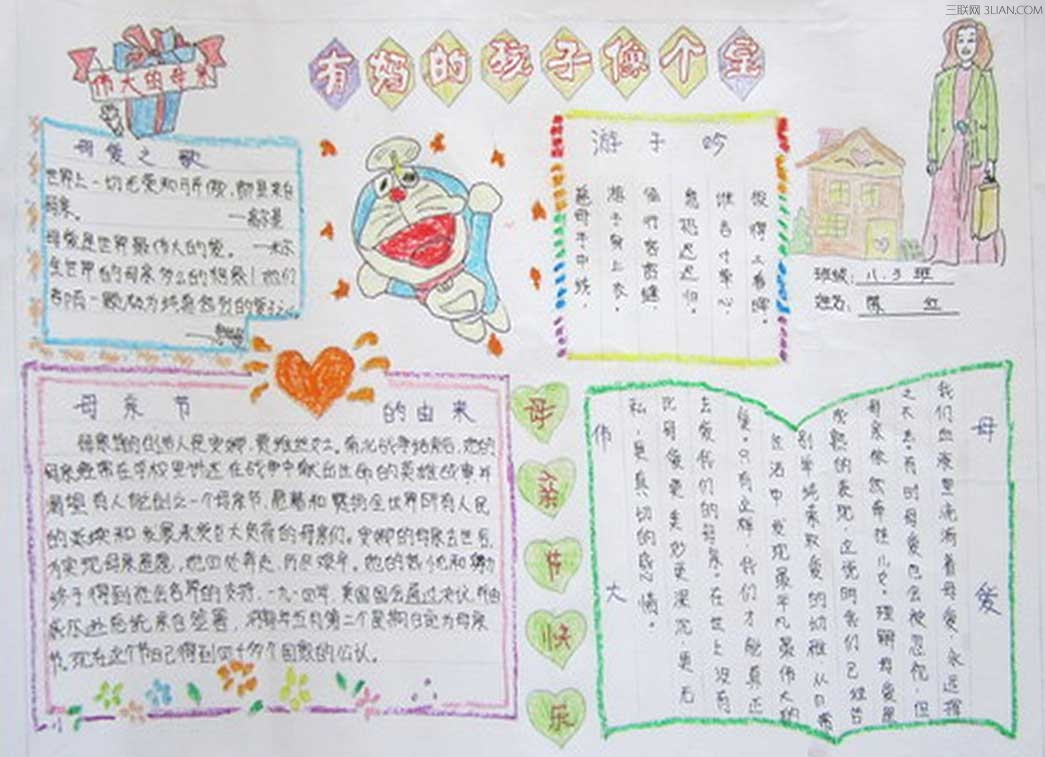 三联网 3LIAN.COM
有妈的孩子像个宝
伟大的母亲
母爱之歌
世界上一切光荣和骄傲，都是来自
母亲。 ——高尔基
母爱是世界最伟大的爱。 ——米尔
全世界的母亲多么的相象！他们
都有一颗极为纯真赤热的赤子之心。
游子吟
慈母手中线，
游子身上衣。
临行密密缝，
意恐迟迟归。
谁言寸草心，
报得三春晖。
班级：八.3班
姓名：红
母亲节的由来
母亲节的创始人是安娜 南北战争结束后，她的
母亲经常在学校里讲述在战争中献出生命的英雄故事并
有人能创立一个母亲节，慰藉和赞扬全世界所有人民
的 和 承受巨大负荷的母亲们。安娜的母亲去世后，
为实现母亲遗愿，她四处奔走，历尽艰辛。她的
终于得到社会各界的支持，一九一四年，美国国会通过决议，并由
总统亲自签署，
将每年五月第二个星期日定为母亲
节。现在这个节日已得到四十多个国家的公认。
母亲节快乐
母爱
我们血液里流淌着母爱，永远挥
之不去。有时母爱也会被忽视，但
母亲依然牵挂儿女。理解母爱是
成熟的表现，这说明我们已经告
别单纯索取爱的幼稚，从日常
生活中发现最平凡最伟大的
爱。只有这样，我们才能真正
去爱我们的母亲。在世上没有
比母爱更美妙更深沉，更无
私，更真切的感情。
伟大